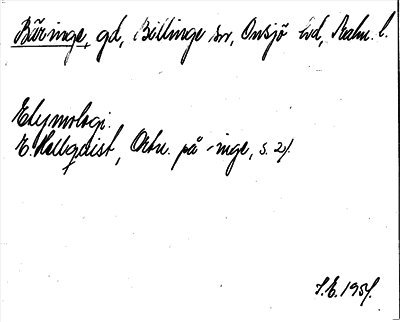 Büringe, gd, Billinge sn, Onsjö hd, Malm. l.
Etymologi.
E. Hellquist, Ortn. på -inge, s. 21.
J.E. 1951.